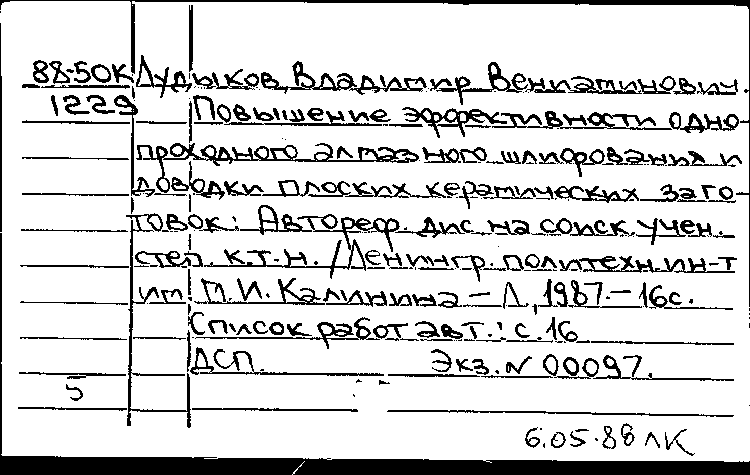 88-50К Лудыков, Владимир Вениаминович.
1229 Повышение эффективности одно-
проходного алмазного шлифования и
доводки плоских керамических заго-
товок: Автореф. дис на соиск. учен.
степ. к.т.н. / Ленингр. политехн. ин-т
им. М.И. Калинина - Л., 1987. - 16с.
Список работ авт.: с. 16
ДСП. Экз. N 00097.
5
6.05.88 ЛК